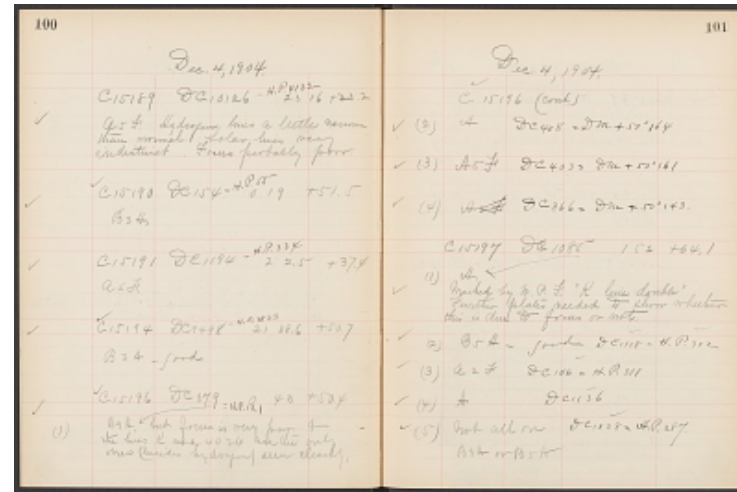 100
Dec. 4, 1904.
C15189 DC10126 = H.P.
A5F. Hydrogen lines a little narrow
than normal. Solar lines very
indistinct. Focus probably poor.
C15190 DC154 = H.P.55 0.19 +51.5
B3A
C15191 DC1194 = H.P.334 2 2.5 +37.4
A5F.
C15194 +50.7
B2A - good
C15196 DC379 = H.P. 40 +50.4
(1) but focus is very poor. If
the lines K and 4026 are the only
ones (besides hydrogen) seen clearly.
101
Dec. 4, 1904.
C 15196 (cont)
(2) A DC408 = DM +50°164
(3) A5F DC403 = DM +50°161
(4) DC366 = DM +50°143.
C15197 DC1085 1 52 +64.1
(1) A
Marked by W. P. F. "K line double"
Further plates needed to show whether
this is due to focus or not.
(2) B5A - good DC1118 = H.P.
(3) A2F DC1106 = H.P. 311
(4) A DC1136
(5) Not all on = H.P. 287
B3A or B5A